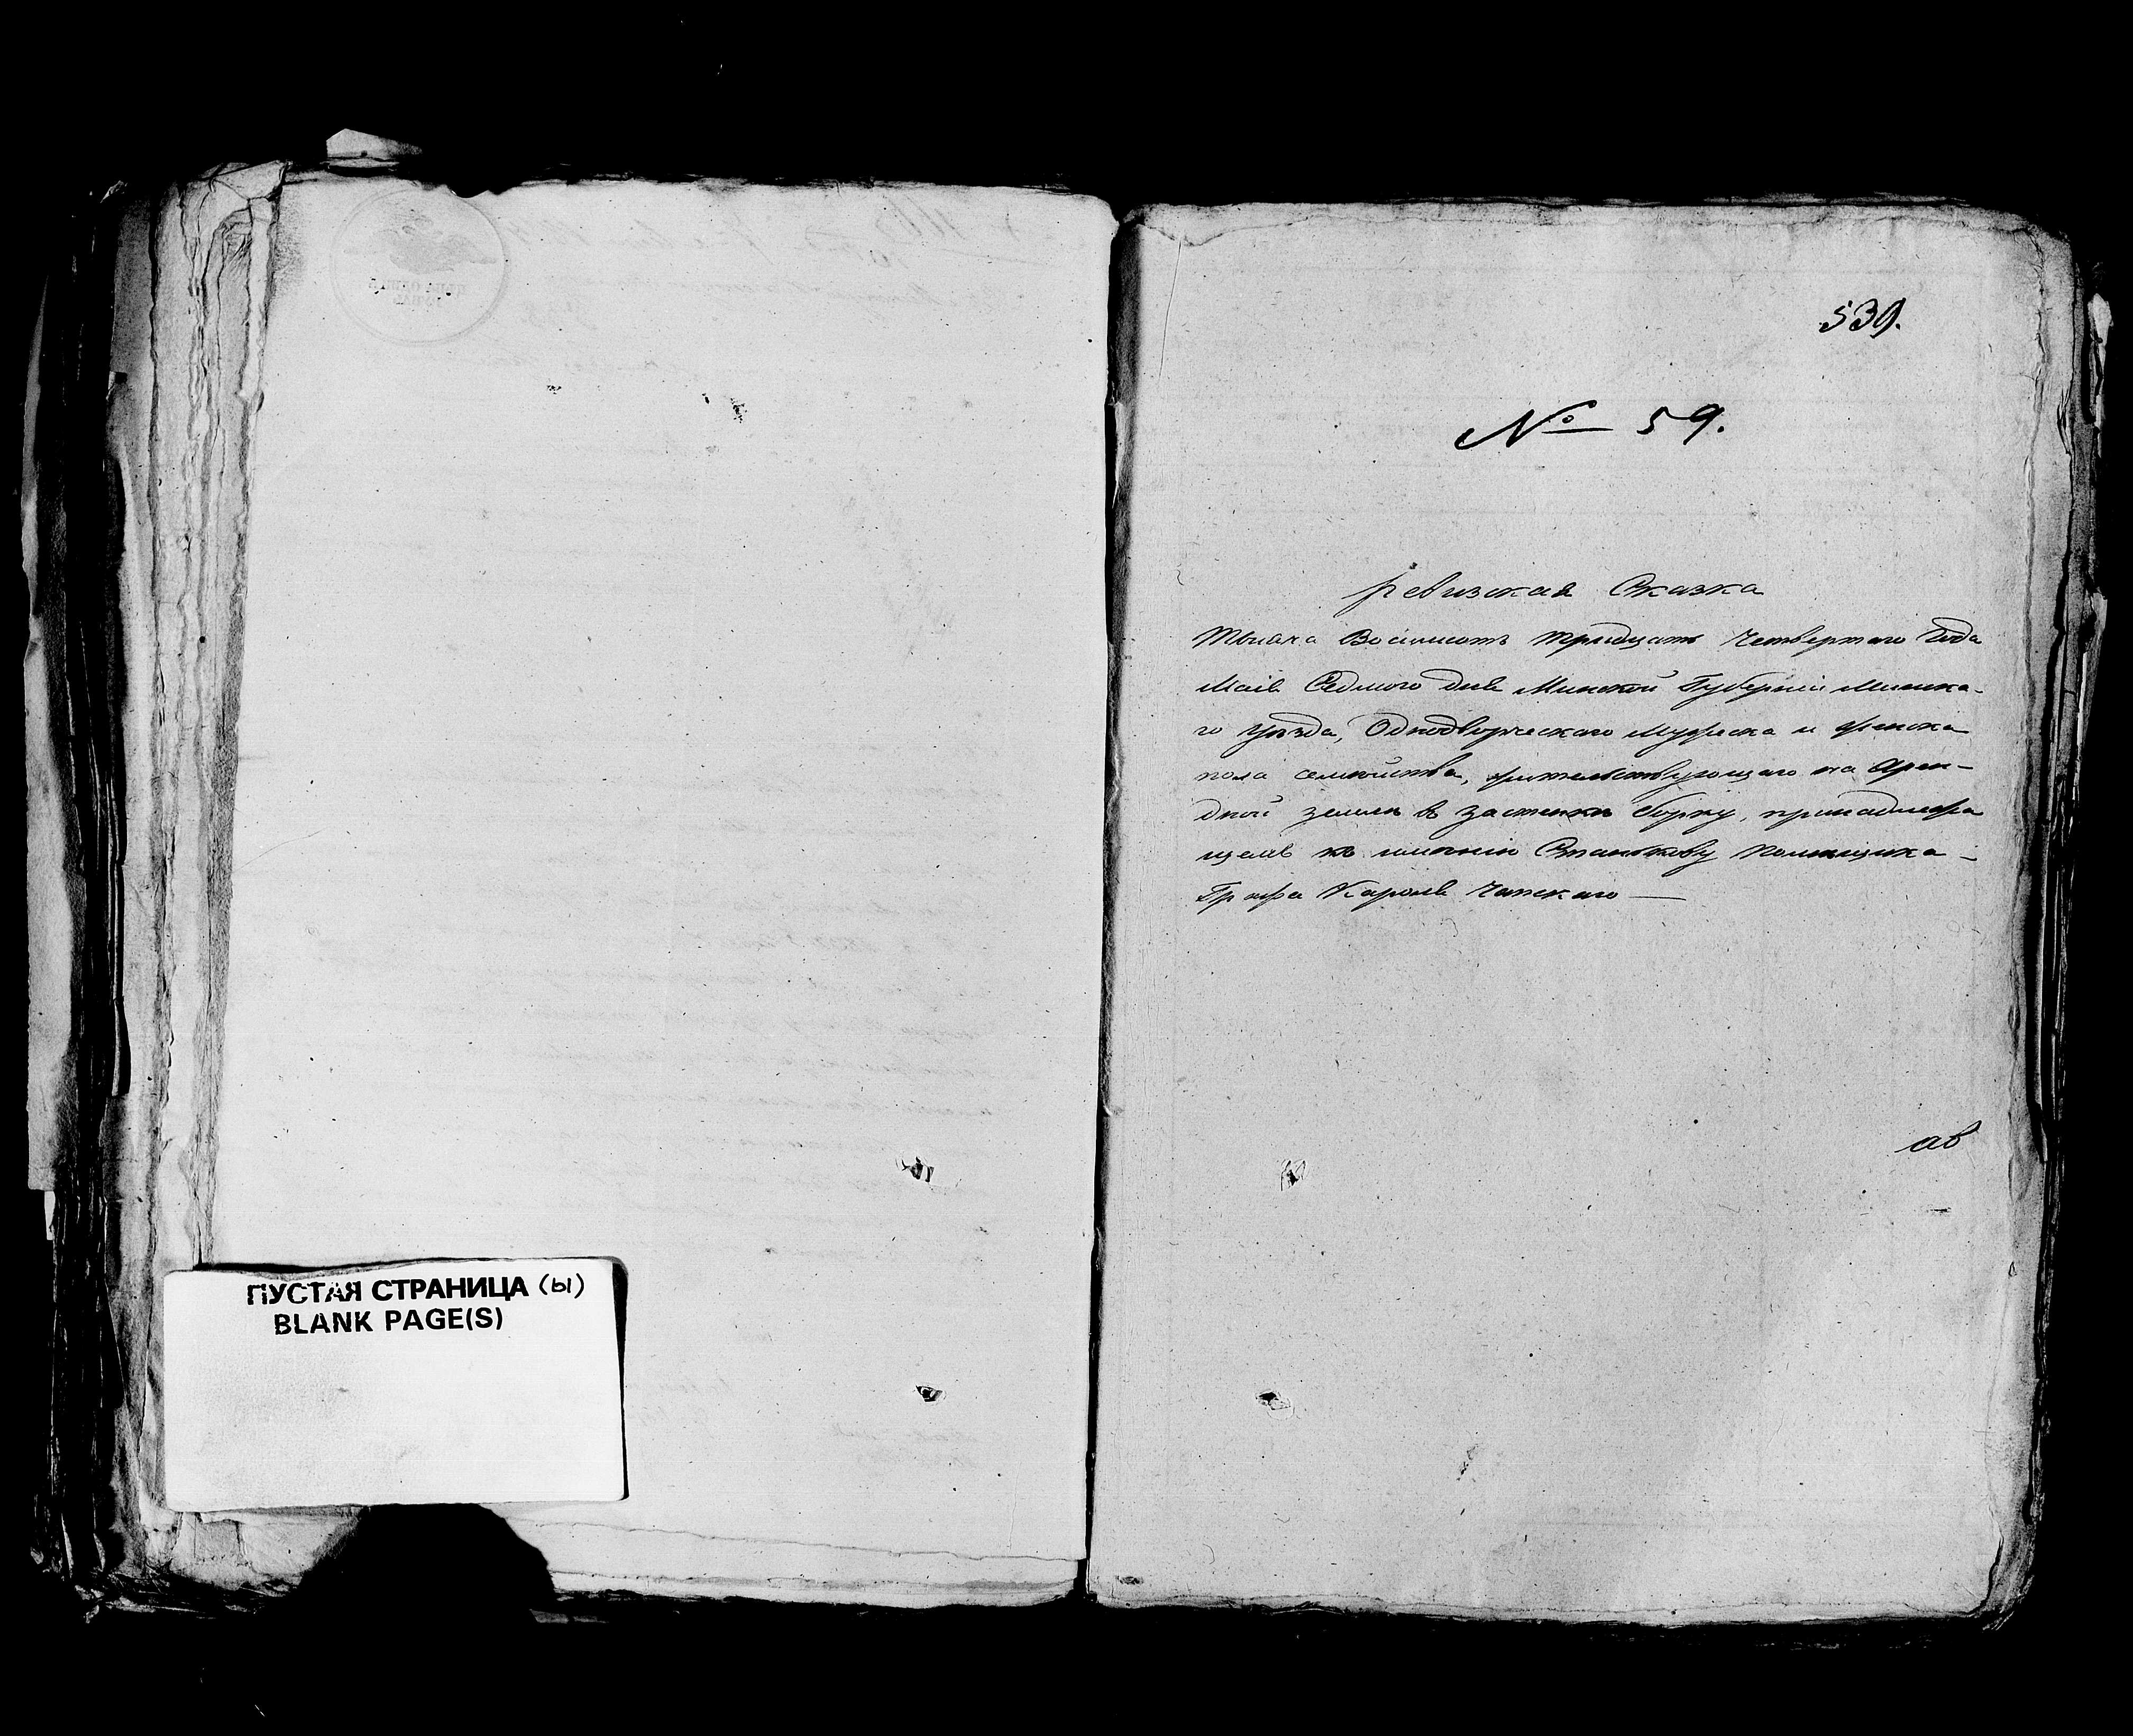 ПУСТАЯ СТРАНИЦА (ы)
BLANK PAGE(S)
539.
№ 59.
Ревизская Сказка
Тысяча Восимсотъ тридцать Четвертаго Года
Маія Седмого дня Минской Губерніи Минска-
го уѣзда, Однодворческаго Мужеска и Женска
пола семейства, жительствующаго на Арен-
дной земли въ застенки Борку, принадлежа
щемъ къ имѣнію Станькову Помещика -
Графа Кароля Чапскаго —
ав